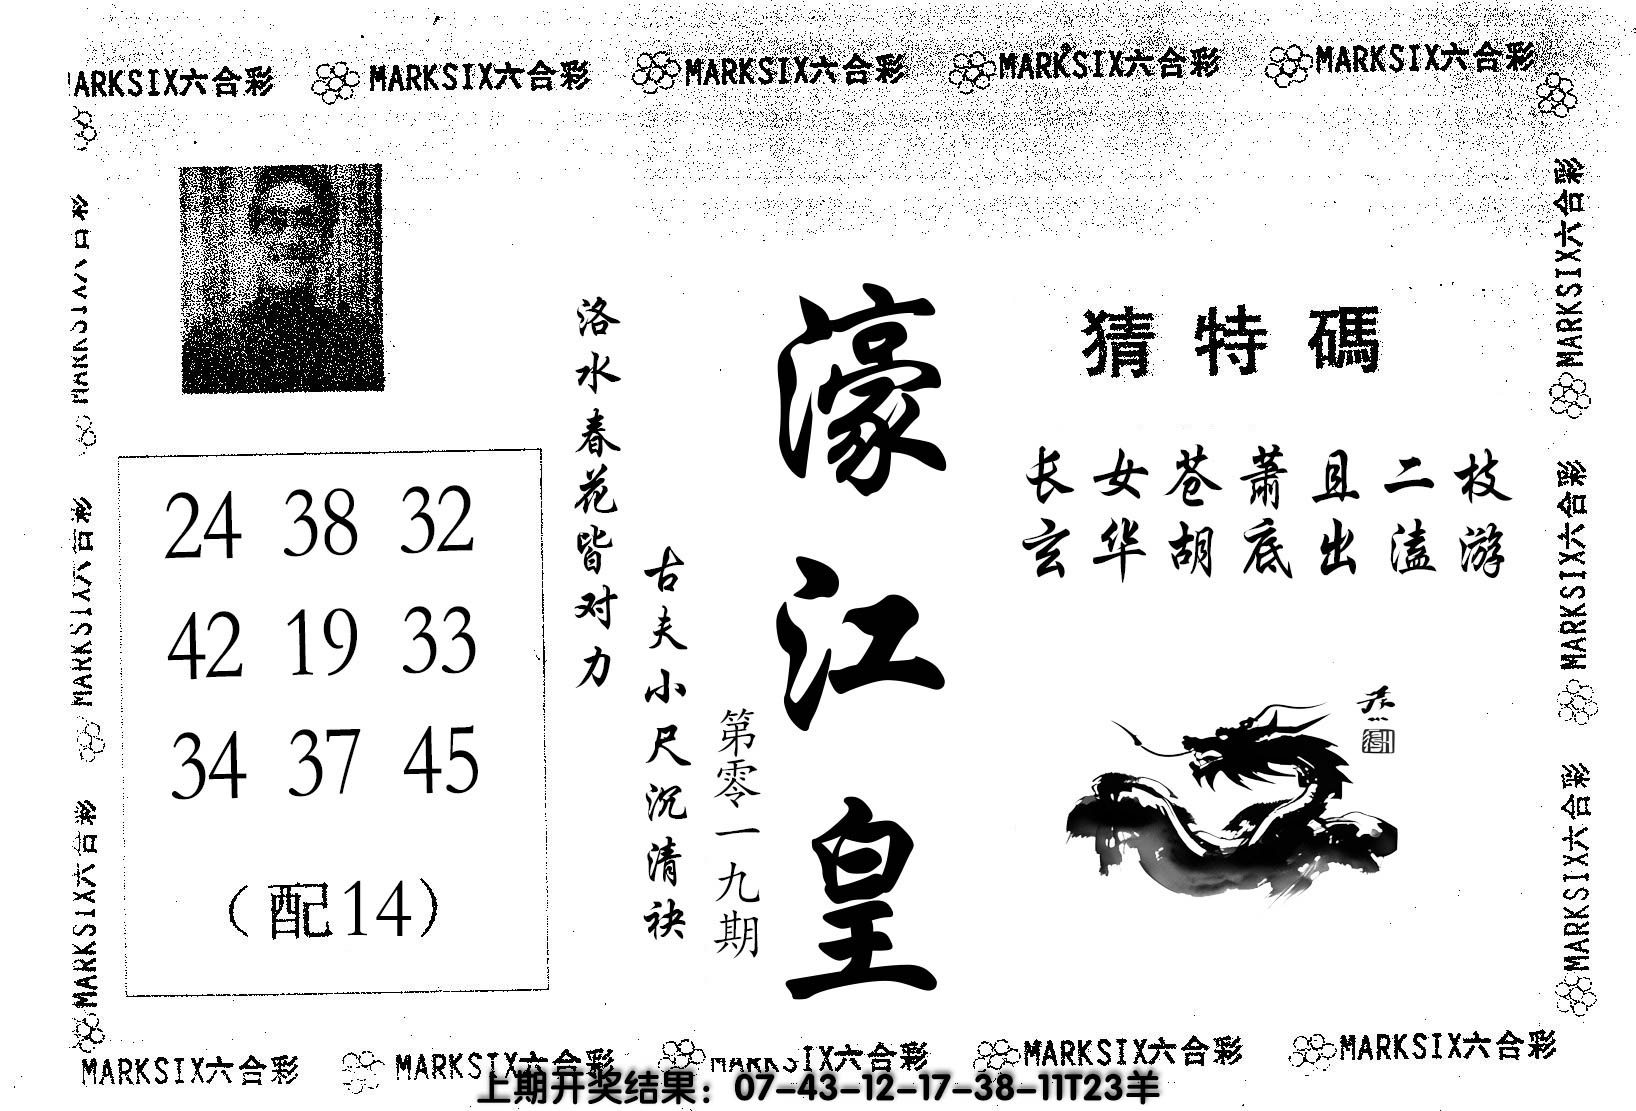 MARKSIX六合彩 MARKSIX六合彩 MARKSIX六合彩 MARKSIX六合彩 MARKSIX六合彩
MARKSIX六合彩
MARKSIX六合彩
MARKSIX六合彩
猜特碼
长女苍萧且二枝
玄华胡底出溘游
濠江皇
第零一九期
洛水春花皆对力
古夫小尺沉清袂
24 38 32
42 19 33
34 37 45
（配14）
MARKSIX六合彩
MARKSIX六合彩
MARKSIX六合彩
MARKSIX六合彩 MARKSIX六合彩 MARKSIX六合彩 MARKSIX六合彩 MARKSIX六合彩
上期开奖结果：07-43-12-17-38-11T23羊